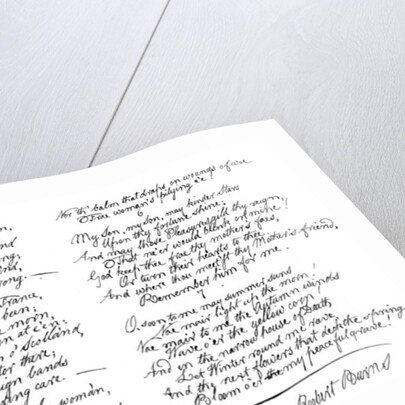 Nor th' balm that draps on wounds of woe
Frae woman's pitying e'e!
My Son, my Son, may kinder Stars
Upon thy fortune shine;
And may those pleasures gild thy reign,
That ne'er would blink on mine!
God keep thee frae thy mother's faes,
Or turn their hearts to thee;
And where thou meet'st thy Mother's friend,
Remember him for me.
O, soon to me may summer suns
Nae mair light up the morn!
Nae mair to me the Autumn winds
Wave o'er the yellow corn
And in the narrow house of Death,
Let Winter round me rave
And the next flowers that deck the spring
Bloom o'er my peaceful grave.
Robert Burns
and
ong.
France,
been;
the morn,
at e'en:
o' Scotland,
there;
bands
care.
woman,